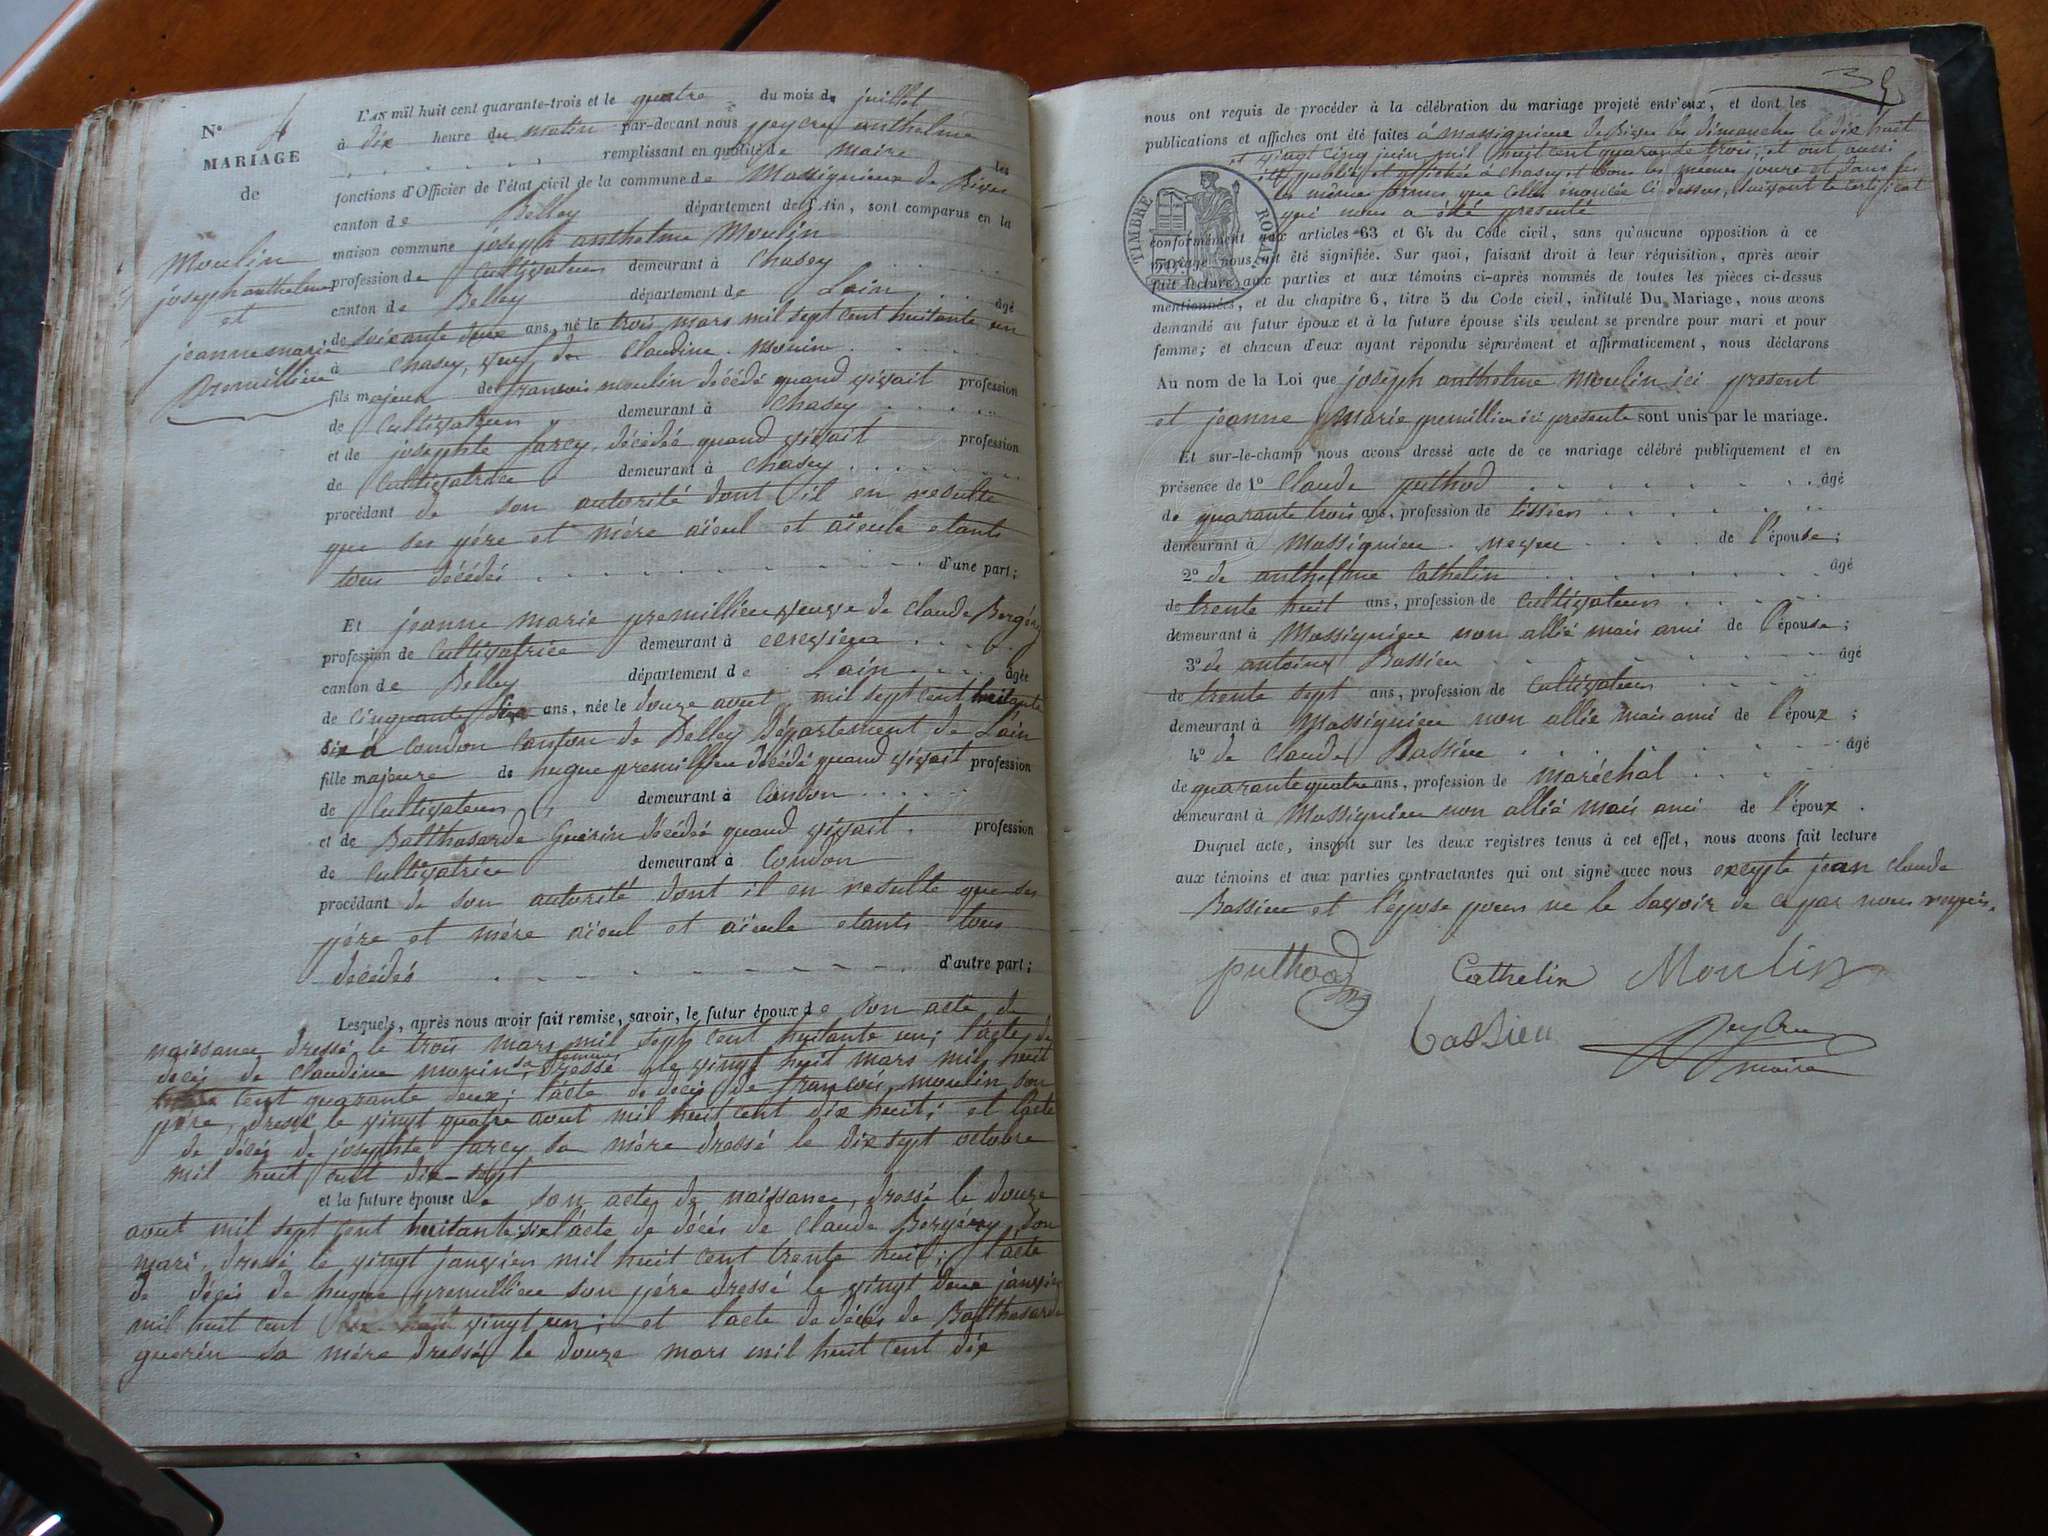 L'AN mil huit cent quarante-trois et le quatre du mois de juillet
N°
à dix heure du matin par-devant nous peycru anthelme
MARIAGE
remplissant en qualité de maire les
de
fonctions d'Officier de l'état civil de la commune de Massignieux de Rives
canton de Belley département de l'Ain, sont comparus en la
maison commune joseph anthelme Moulin
Moulin
profession de Cultivateur demeurant à Chasey
joseph anthelme
canton de Belley département de Lain âgé
et
de soixante deux ans, né le trois mars mil sept cent huitante un
jeanne marie
à Chasey, veuf de Claudine monin
premillieu
fils majeur de francois moulin décédé quand vivait profession
de Cultivateur demeurant à Chasey
et de josephte farcy, décédée quand vivait profession
de Cultivatrice demeurant à Chasey
procédant de son autorité dont il en resulte
que ses pére et mére aïeul et aïeule etants
tous décédés d'une part;
Et jeanne marie premillieu veuve de Claude Bergéry
profession de Cultivatrice demeurant à
canton de Belley département de Lain âgée
de cinquante six ans, née le douze aout mil sept cent huitante
six à Condon Canton de Belley Département de Lain
fille majeure de hugue premillieu décédé quand vivait profession
de Cultivateur demeurant à Condon
et de Balthasarde Guérin décédée quand vivait profession
de Cultivatrice demeurant à Condon
procédant de son autorité dont il en resulte que ses
pére et mére aïeul et aïeule etants tous
décédés d'autre part;
Lesquels, après nous avoir fait remise, savoir, le futur époux de son acte de
naissance dressé le trois mars mil sept cent huitante un; l'acte de
décés de claudine monin sa femme dressé le vingt huit mars mil huit
cent quarante deux; l'acte de décés de francois moulin son
pére, dressé le vingt quatre aout mil huit cent dix huit; et l'acte
de décés de josephte farcy sa mére dressé le dix sept octobre
mil huit cent dix-sept
et la future épouse de son acte de naissance, dressé le douze
aout mil sept cent huitante six l'acte de décés de Claude Bergéry son
mari, dressé le vingt janvier mil huit cent trente huit; l'acte
de décés de hugue premillieu son pére dressé le vingt deux janvier
mil huit cent vingt un; et l'acte de décés de Balthasarde
guerin sa mére dressé le douze mars mil huit cent dix
nous ont requis de procéder à la célébration du mariage projeté entr'eux, et dont les
publications et affiches ont été faites à massignieux de Rives les dimanches le dix huit
et vingt cinq juin mil huit cent quarante trois; et ont aussi
été publiés et affichés à chasey et tous les mêmes jours et dans les
mêmes formes que celle enoncée ci dessus, suivant le certificat
qui nous a été presenté
TIMBRE ROYAL
conformément aux articles 63 et 64 du Code civil, sans qu'aucune opposition à ce
mariage nous ait été signifiée. Sur quoi, faisant droit à leur réquisition, après avoir
fait lecture aux parties et aux témoins ci-après nommés de toutes les pièces ci-dessus
mentionnées, et du chapitre 6, titre 5 du Code civil, intitulé Du Mariage, nous avons
demandé au futur époux et à la future épouse s'ils veulent se prendre pour mari et pour
femme; et chacun d'eux ayant répondu séparément et affirmativement, nous déclarons
Au nom de la Loi que joseph anthelme Moulin ici present
et jeanne Marie premillieu ici presente sont unis par le mariage.
Et sur-le-champ nous avons dressé acte de ce mariage célébré publiquement et en
présence de 1° Claude puthod âgé
de quarante trois ans, profession de tissier
demeurant à Massignieu neveu de l'épouse;
2° de anthelme Cathelin âgé
de trente huit ans, profession de Cultivateur
demeurant à Massignieu non allié mais ami de l'épouse;
3° de antoine Bassieu âgé
de trente sept ans, profession de Cultivateur
demeurant à Massignieu non allié mais ami de l'époux;
4° de Claude Bassieu âgé
de quarante quatre ans, profession de maréchal
demeurant à Massignieu non allié mais ami de l'époux.
Duquel acte, inscrit sur les deux registres tenus à cet effet, nous avons fait lecture
aux témoins et aux parties contractantes qui ont signé avec nous excepte jean claude
Bassieu et l'épose pour ne le savoir de ce par nous requis.
puthod Cathelin Moulin
bassieu Peycru
maire